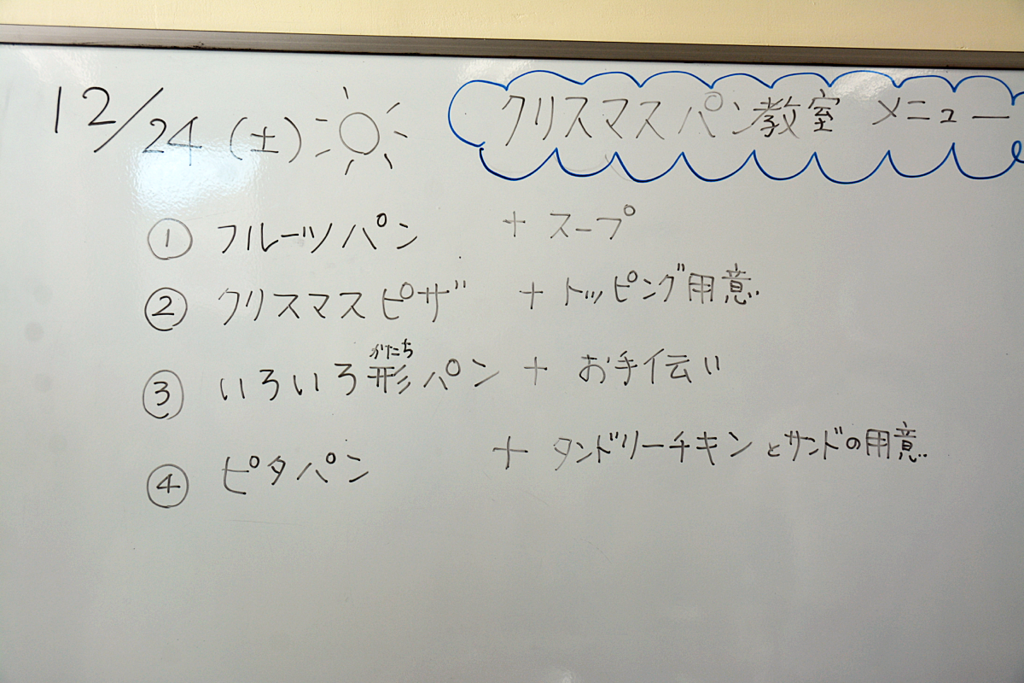 12/24 (土) クリスマスパン教室 メニュー
① フルーツパン + スープ
② クリスマスピザ + トッピング用意
③ いろいろ形パン + お手伝い
かたち
④ ピタパン + タンドリーチキンとサンドの用意